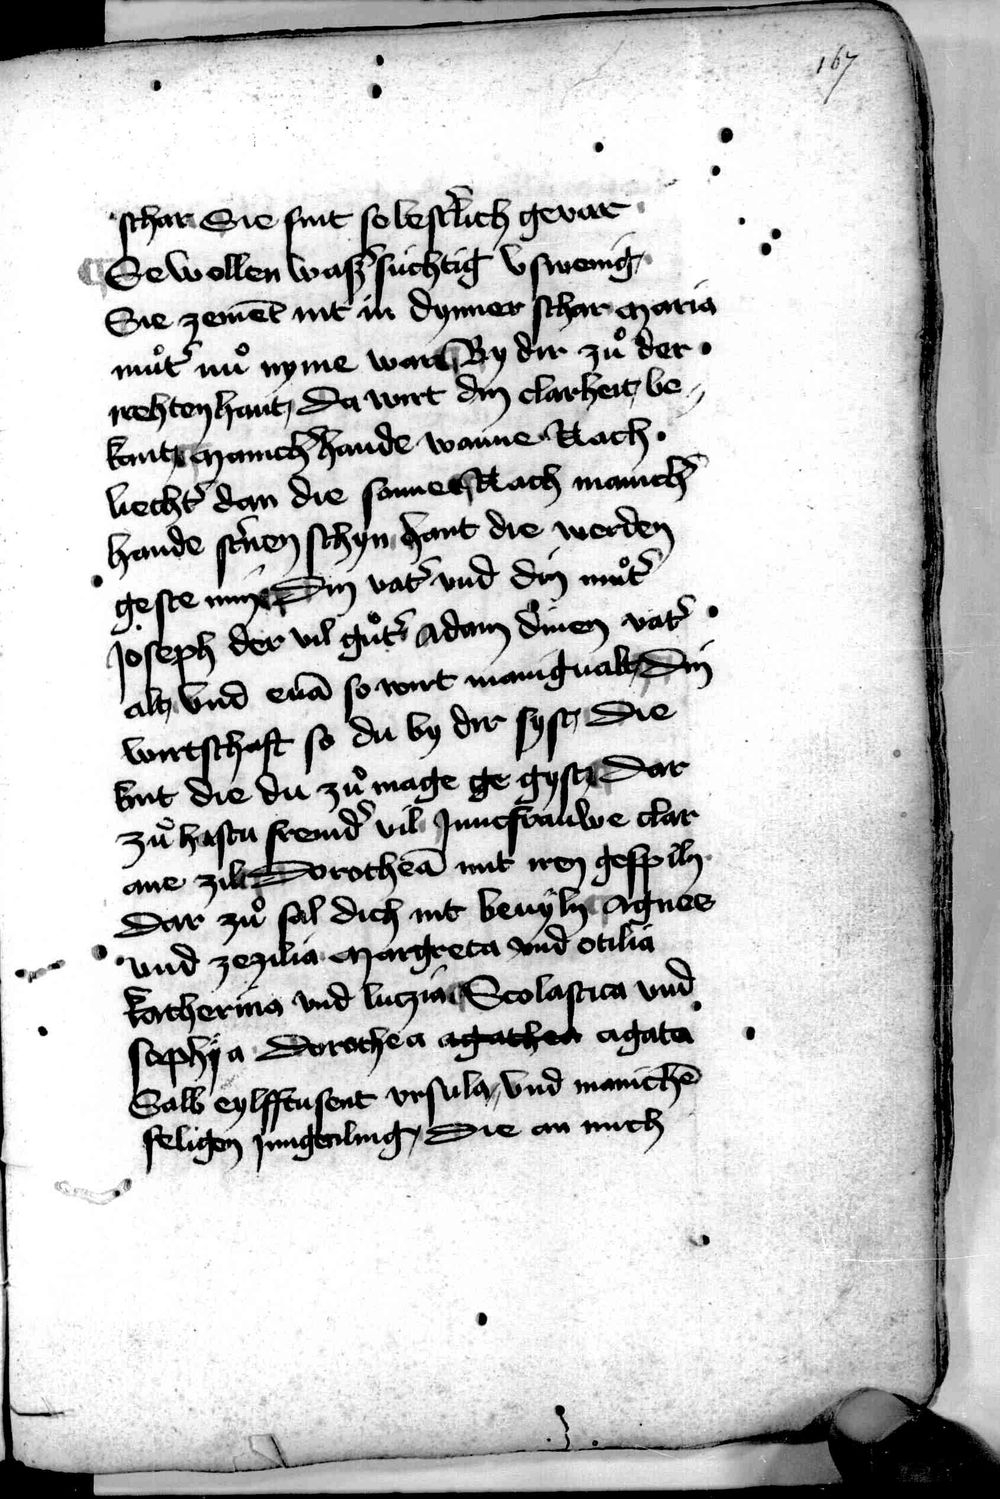 167
schar Sie sint so lesterlich gevar
Se wollen wasz̓ suchtig vswenig
Sie zement nit in dynner schar Maria
můt̓ nů nyme war By dir zů der
rehten hant, Da wirt din clarheit, be
kant, Manich̓ hande wunne Nach
liecht̓ dan die sonne Nach manich̓
hande st̓nen schyn hant die werden
geste min Din vat̓ vnd din můt̓
Joseph der vil gůt̓ Adam dinen vat̓
alt, vnd eua so wirt manigualt, Din
wirtschaft so du by dir syst, Die
kint die du zů mage ge gyst, Dar
zů hastu fremd̓ vil Juncfrauwe clar
ane zil Dorothea mit iren gespiln
Dar zů sal dich nit beuyln Agnes
vnd zezilia Margreta vnd otilia
Katherina vnd luczia Scolastica vnd
sophya Dorothea agathea agata
Salb eylfftusent vrsula, vnd maniche
seligen Jungenling, Die an mich